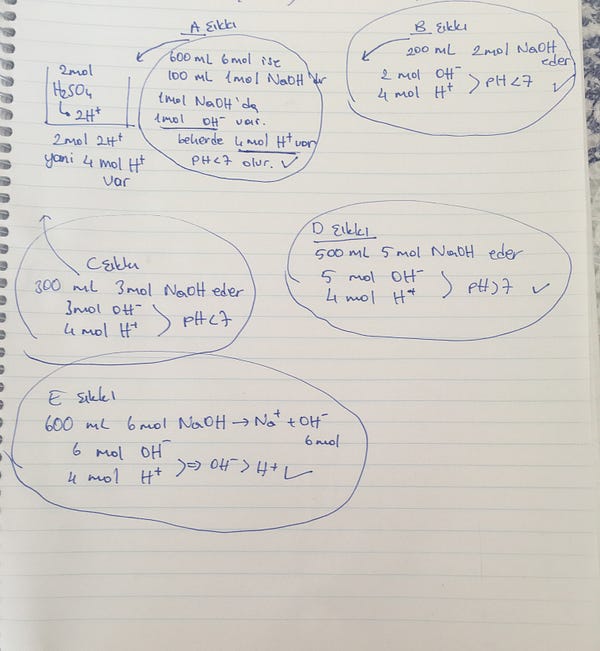 A Şıkkı
2mol
H₂SO₄
↳ 2H⁺
2mol 2H⁺
yani 4 mol H⁺
var
600 mL 6mol ise
100 mL 1mol NaOH'dır
1mol NaOH'da
1mol OH⁻ var.
beherde 4 mol H⁺ var
PH<7 olur. ✓
B Şıkkı
200 mL 2mol NaOH
eder
2 mol OH⁻
4 mol H⁺ > PH<7 ✓
C Şıkkı
300 mL 3mol NaOH eder
3mol OH⁻
4 mol H⁺ > PH<7
D Şıkkı
500 mL 5 mol NaOH eder
5 mol OH⁻
4 mol H⁺ > PH>7 ✓
E Şıkkı
600 mL 6mol NaOH → Na⁺ + OH⁻
6mol
6 mol OH⁻
4 mol H⁺ >⇒ OH⁻ > H⁺ ✓